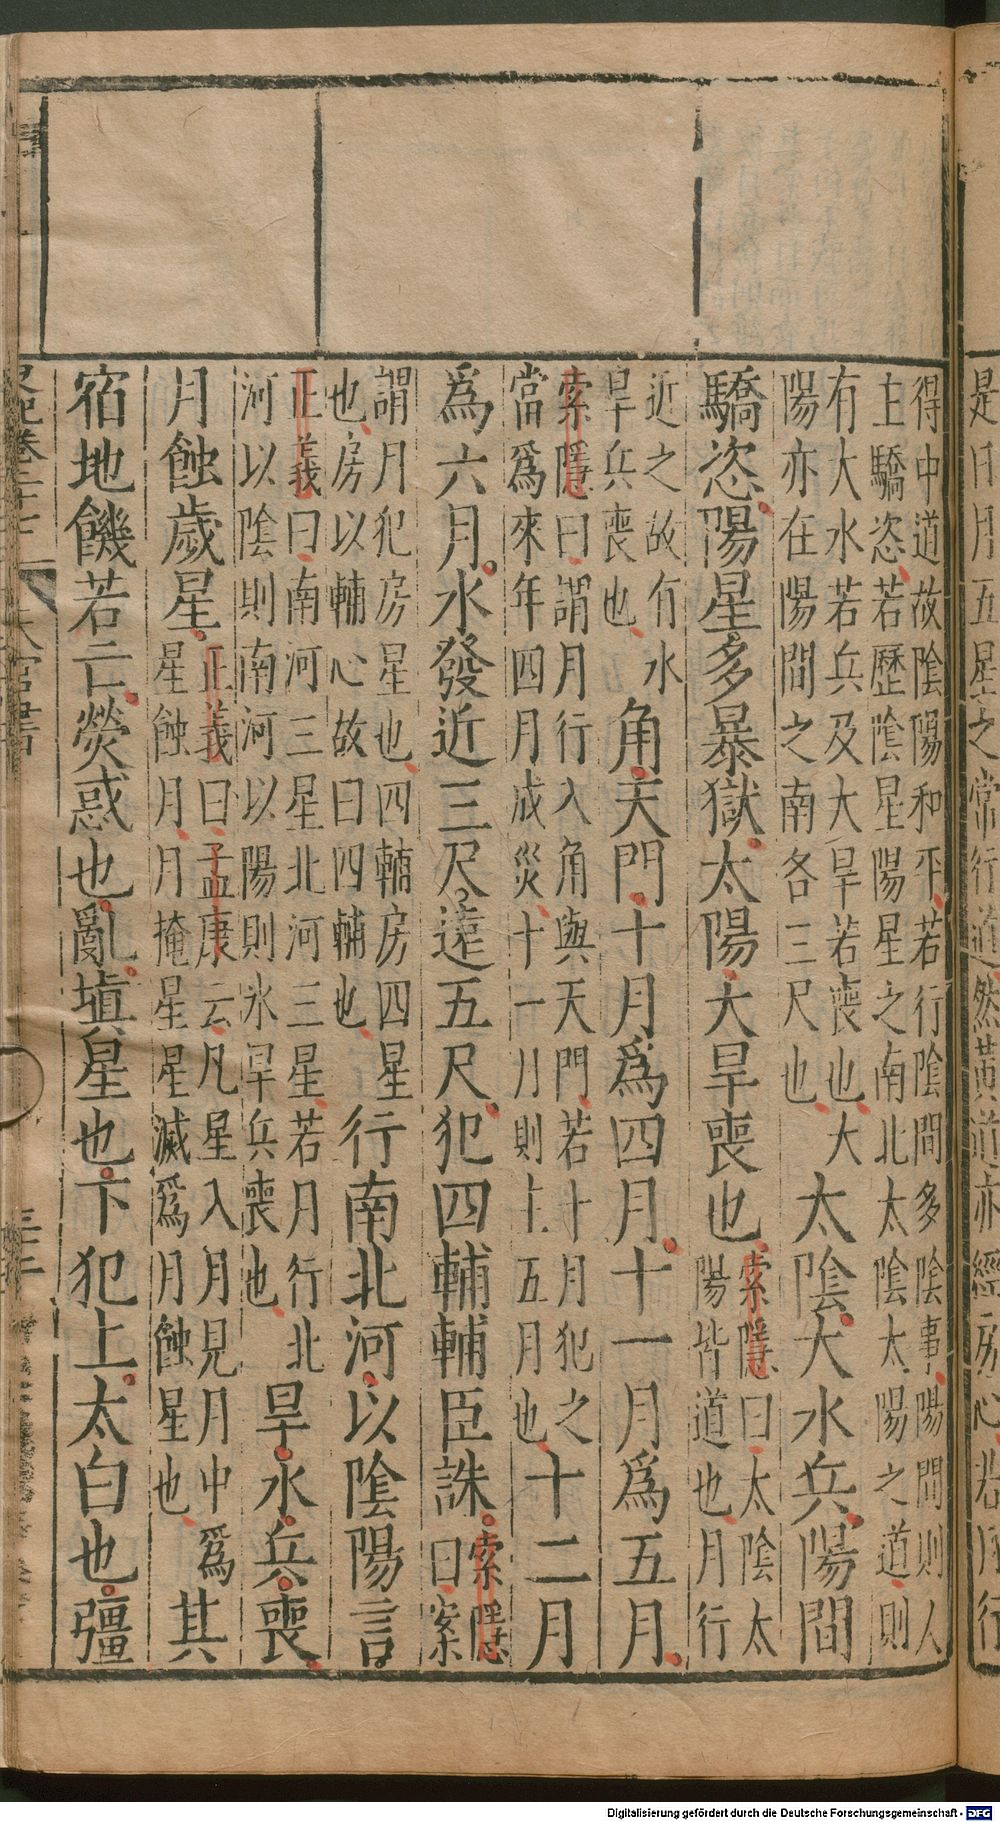 是日月五星之常行道然黃道亦經房心若月行
得中道故陰陽和平若行陰間多陰事陽間則人
主驕恣若歷陰星陽星之南北太陰太陽之道則
有大水若兵及大旱若喪也大
陽亦在陽間之南各三尺也
太陰大水兵陽間
驕恣陽星多暴獄太陽大旱喪也
索隱曰太陰太
陽皆道也月行
近之故有水
旱兵喪也
角天門十月爲四月十一月爲五月
索隱曰謂月行入角與天門若十月犯之
當爲來年四月成災十一月則主五月也
十二月
爲六月水發近三尺遠五尺犯四輔輔臣誅
索隱
曰案
謂月犯房星也四輔房四星
也房以輔心故曰四輔也
行南北河以陰陽言
正義曰南河三星北河三星若月行北
河以陰則南河以陽則水旱兵喪也
旱水兵喪
月蝕歲星
正義曰孟康云凡星入月見月中爲
星蝕月月掩星星滅爲月蝕星也
其
宿地饑若亡熒惑也亂塡星也下犯上太白也彊
史記卷二十七
天官書
Digitalisierung gefördert durch die Deutsche Forschungsgemeinschaft - DFG